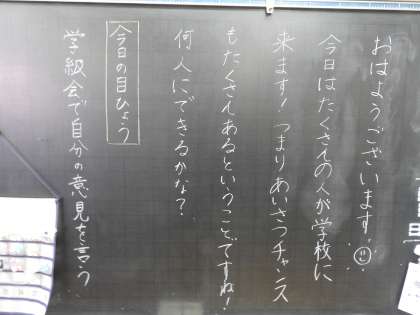 おはようございます。
今日はたくさんの人が学校に
来ます！つまりあいさつチャンス
もたくさんあるということですね！
何人にできるかな？
今日の目ひょう
学級会で自分の意見を言う